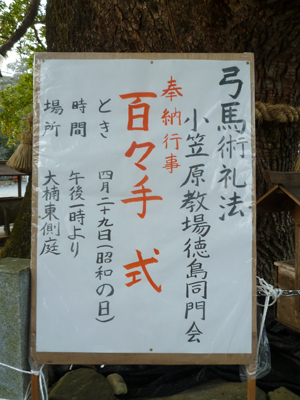 弓馬術礼法
小笠原教場徳島同門会
奉納行事
百々手式
とき 四月二十九日(昭和の日)
時間 午後一時より
場所 大楠東側庭